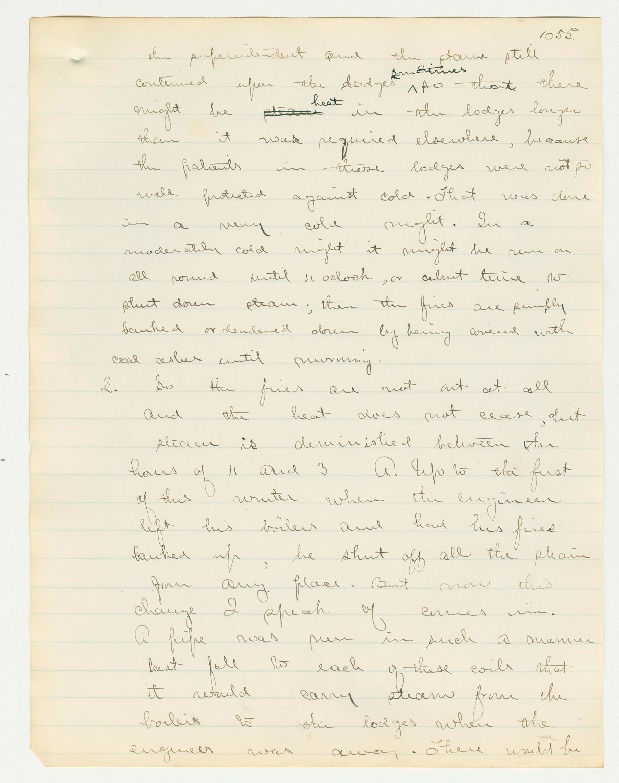 1055
the superintendent and the steam still
continued upon the lodges sometimes so that there
might be steam heat in the lodges longer
than it was required elsewhere, because
the patients in these lodges were not so
well protected against cold. That was done
in a very cold night. In a
moderately cold night it might be run on
all round until 11 oclock, or about time to
shut down steam; then the fires are simply
banked or deadened down by being covered with
coal ashes until morning.
Q. So the fires are not out at all
and the heat does not cease, but
steam is deminished between the
hours of 11 and 3 A. Up to the first
of this winter when the engineer
left his boilers and had his fires
banked up, he shut off all the steam
from any place. But now this
change I speak of comes in.
A pipe was run in such a manner
last fall to each of these coils that
it would carry steam from the
boilers to the lodges when the
engineer was away. There would be